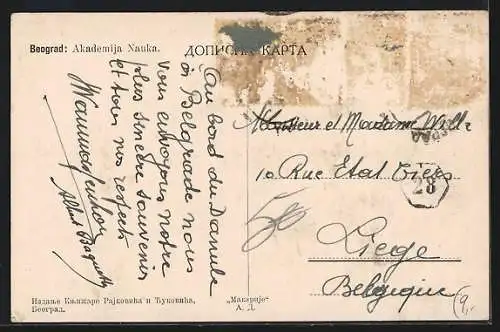 Beograd: Akademija Nauka.
ДОПИСНА КАРТА
Au bord du Danube
à Belgrade nous
vous envoyons notre
plus sincère souvenir
et tous nos respects
Albert
Monsieur et Madame Willz
10 Rue Etat Tiers
Liege
Belgique
28
50
9,-
Издање Књижаре Рајковића и Ћуковића,
Београд.
„Макарије"
А. Д.